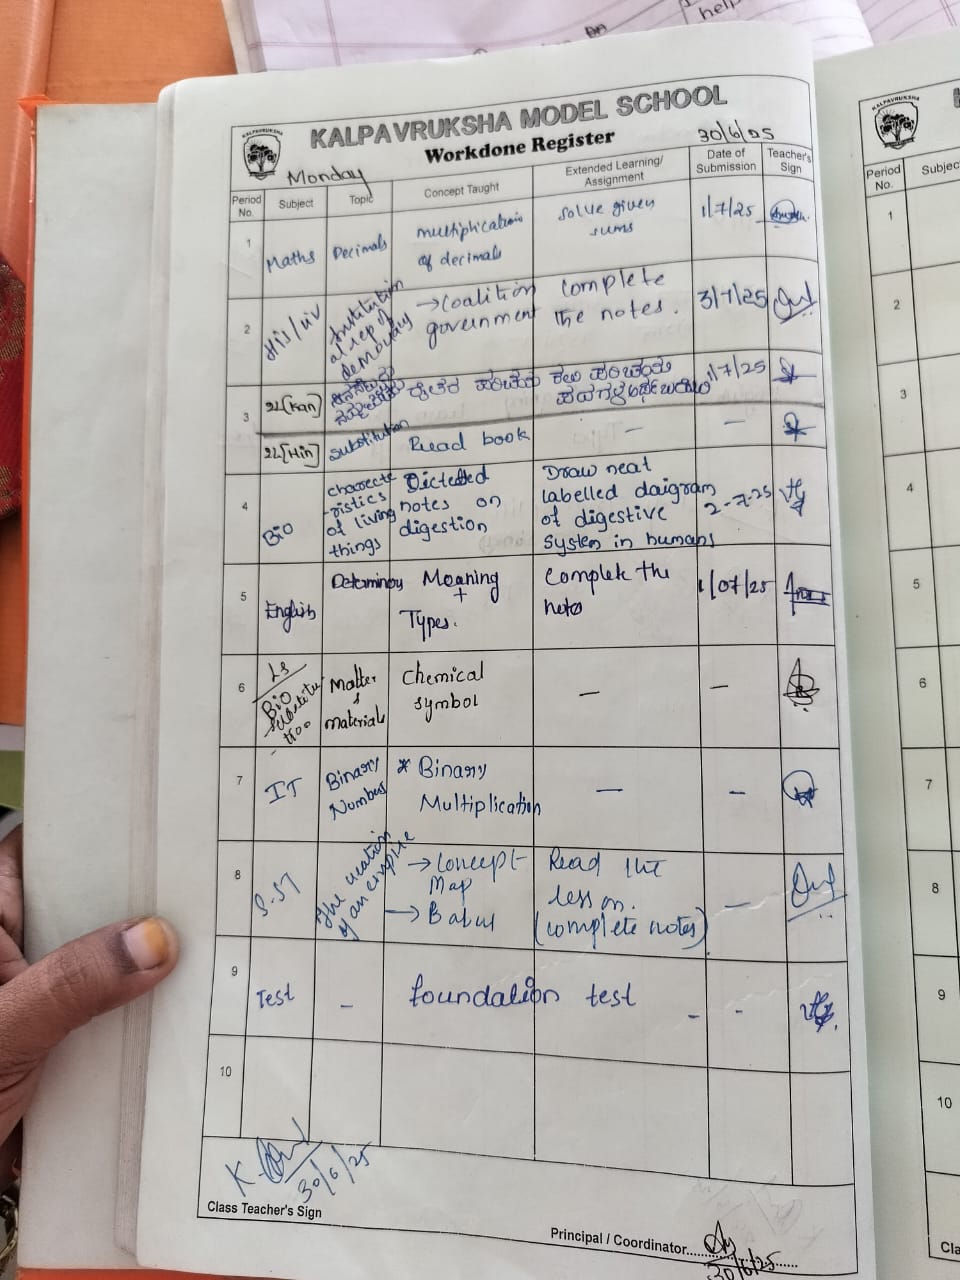 help
KALPAVRUKSHA
KALPAVRUKSHA MODEL SCHOOL
Workdone Register
30/6/25
Monday
Period No. Subject Topic Concept Taught Extended Learning/ Assignment Date of Submission Teacher's Sign
1 Maths Decimals multiplication of decimals solve given sums 1/7/25
2 His/civ Institutional rep of democracy →Coalition government complete the notes. 3/7/25
3 2L[Kan] 1/7/25
2L[Hin] substitution Read book — —
4 Bio characte-ristics of living things Dictated notes on digestion Draw neat labelled daigram of digestive system in humans 2-7-25
5 English Meaning + Types. Complete the notes 1/07/25
6 Bio Matter & materials Chemical symbol — —
7 IT Binary Number * Binary Multiplication — —
8 S.ST of an empire →Concept Map → Babur Read the lesson. (complete notes) —
9 Test - foundation test - -
10
30/6/25
Class Teacher's Sign
Principal / Coordinator
30/6/25
KALPAVRUKSHA
Period No. Subjec
1
2
3
4
5
6
7
8
9
10
Cla